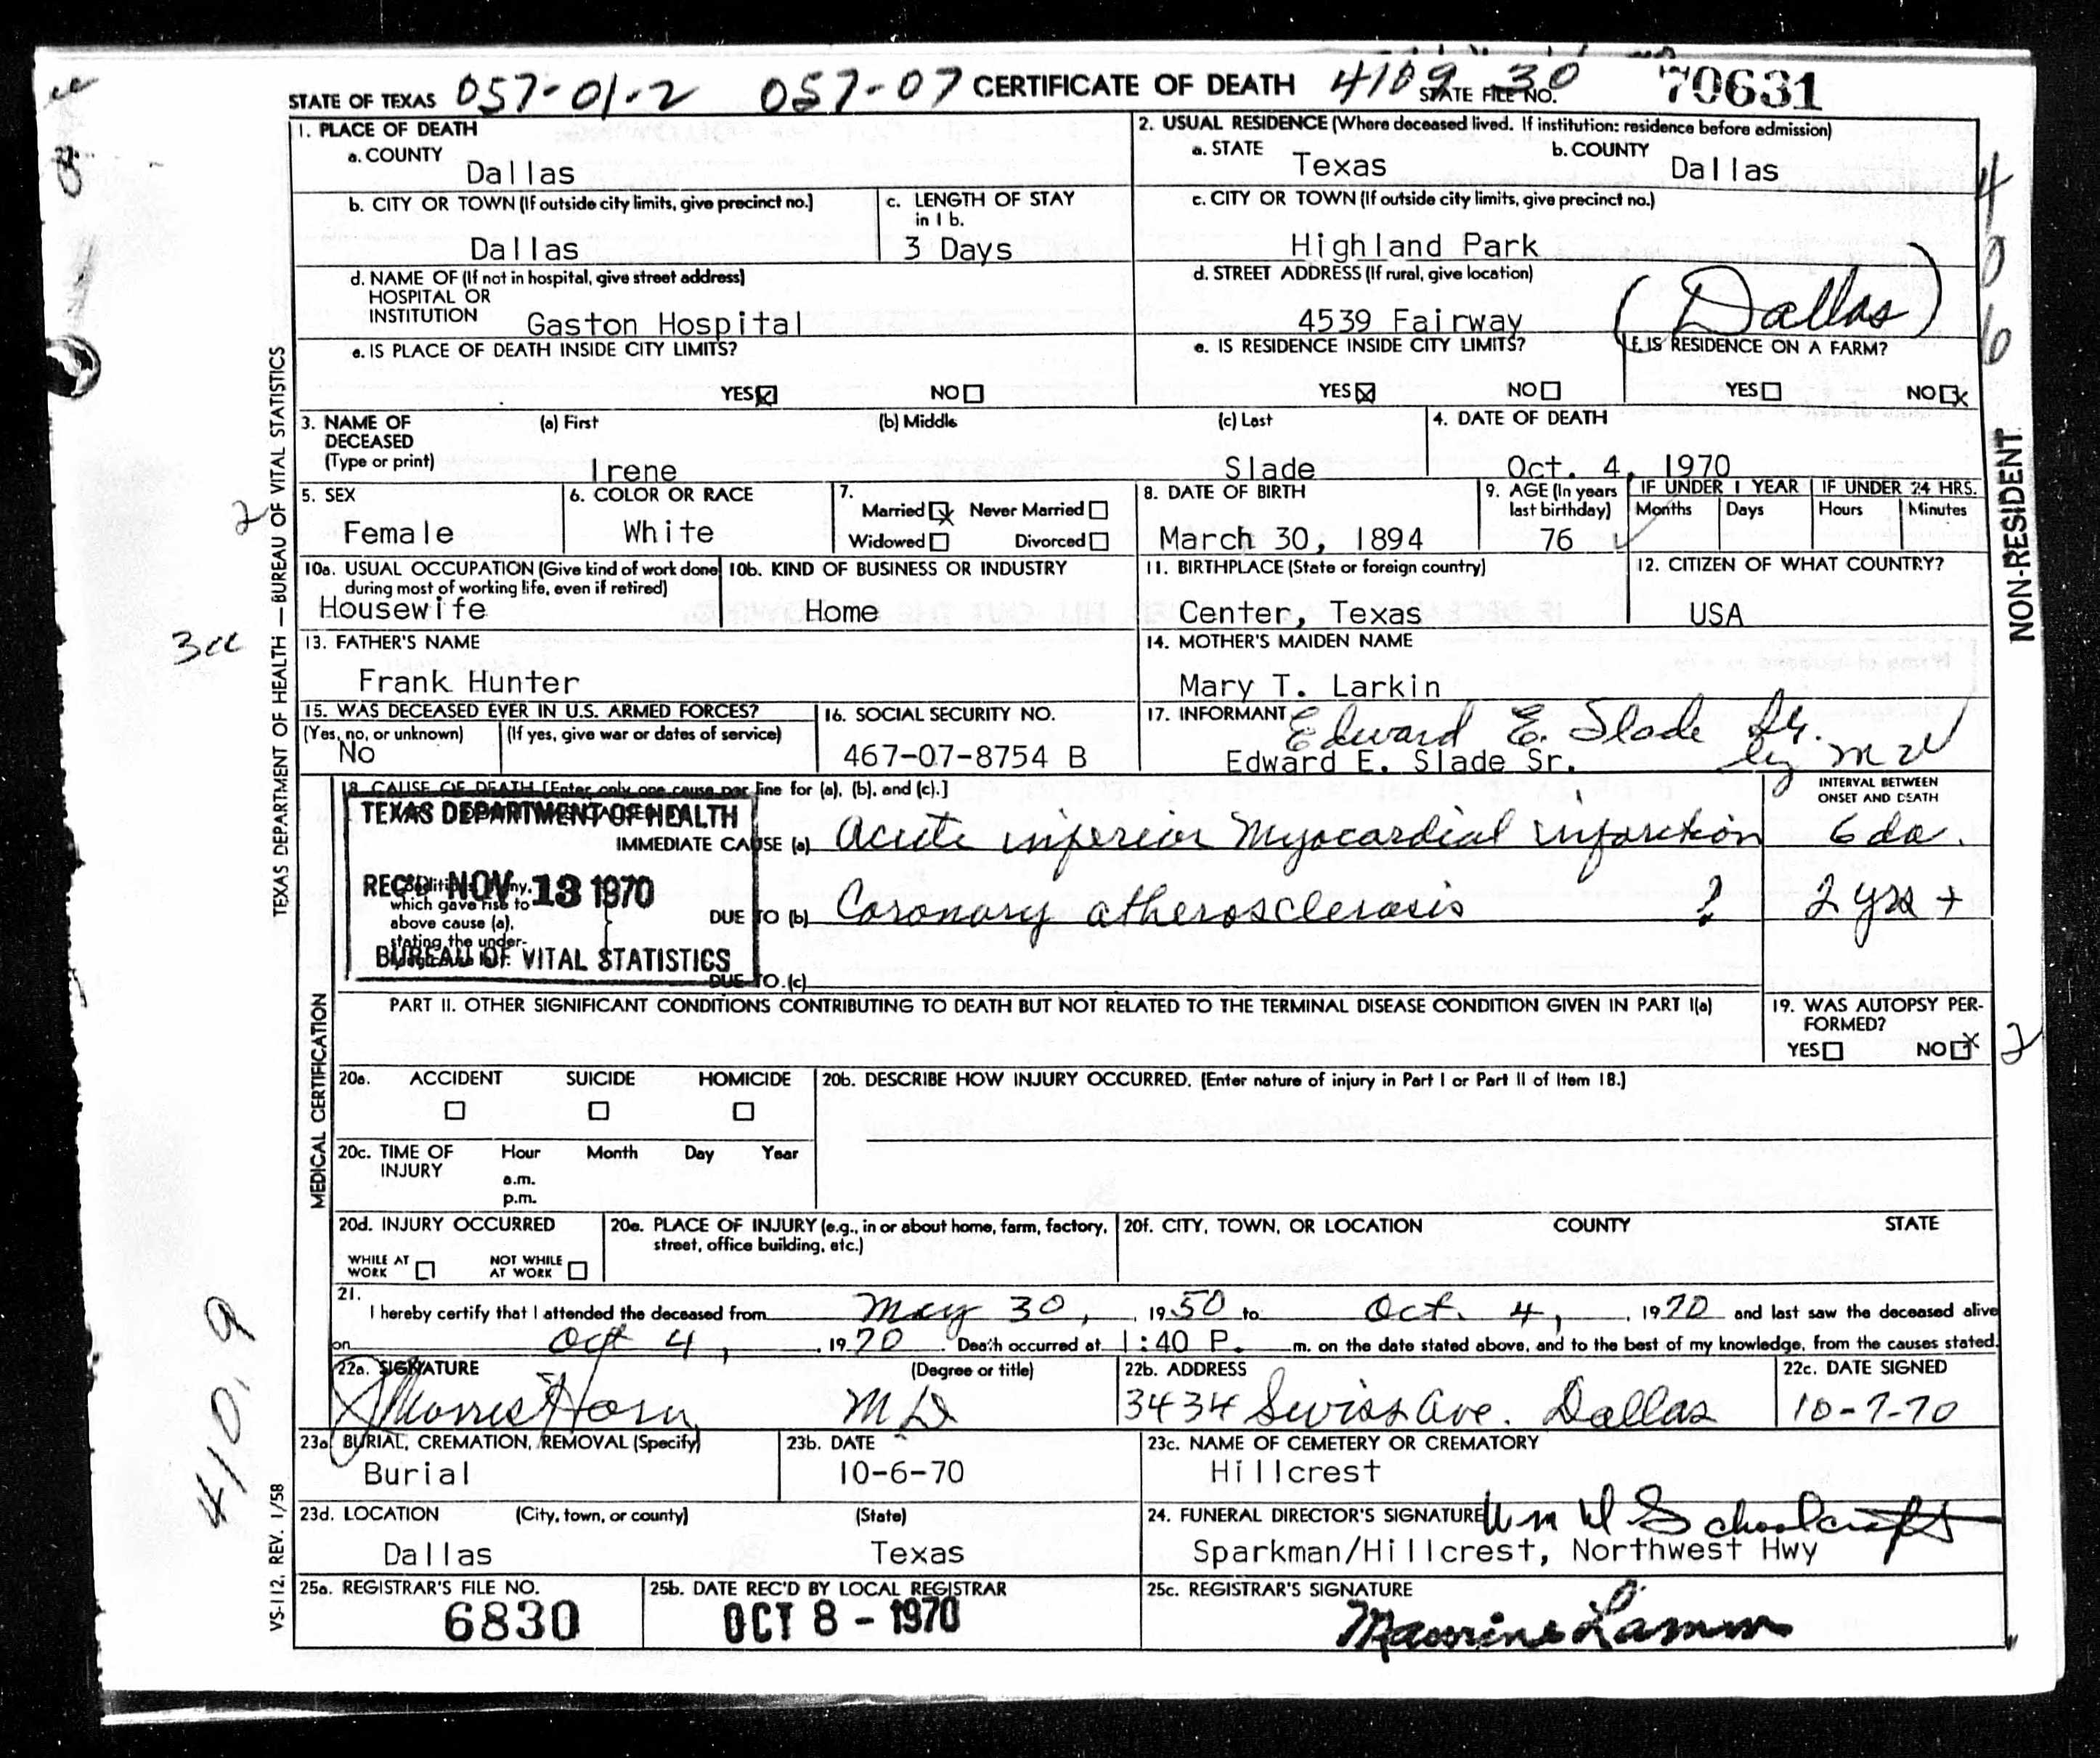 STATE OF TEXAS 057-01-2 057-07 CERTIFICATE OF DEATH 4109 30 STATE FILE NO. 70631
1. PLACE OF DEATH
a. COUNTY
Dallas
2. USUAL RESIDENCE (Where deceased lived. If institution: residence before admission)
a. STATE Texas b. COUNTY Dallas
b. CITY OR TOWN (If outside city limits, give precinct no.)
Dallas
c. LENGTH OF STAY
in 1 b.
3 Days
c. CITY OR TOWN (If outside city limits, give precinct no.)
Highland Park
d. NAME OF (If not in hospital, give street address)
HOSPITAL OR
INSTITUTION Gaston Hospital
d. STREET ADDRESS (If rural, give location)
4539 Fairway (Dallas)
e. IS PLACE OF DEATH INSIDE CITY LIMITS?
YES NO
e. IS RESIDENCE INSIDE CITY LIMITS?
YES NO
f. IS RESIDENCE ON A FARM?
YES NO
3. NAME OF
DECEASED
(Type or print)
(a) First (b) Middle (c) Last
Irene Slade
4. DATE OF DEATH
Oct. 4, 1970
5. SEX
Female
6. COLOR OR RACE
White
7.
Married Never Married
Widowed Divorced
8. DATE OF BIRTH
March 30, 1894
9. AGE (In years
last birthday)
76
IF UNDER 1 YEAR IF UNDER 24 HRS.
Months Days Hours Minutes
10a. USUAL OCCUPATION (Give kind of work done
during most of working life, even if retired)
Housewife
10b. KIND OF BUSINESS OR INDUSTRY
Home
11. BIRTHPLACE (State or foreign country)
Center, Texas
12. CITIZEN OF WHAT COUNTRY?
USA
13. FATHER'S NAME
Frank Hunter
14. MOTHER'S MAIDEN NAME
Mary T. Larkin
15. WAS DECEASED EVER IN U.S. ARMED FORCES?
(Yes, no, or unknown) (If yes, give war or dates of service)
No
16. SOCIAL SECURITY NO.
467-07-8754 B
17. INFORMANT Edward E. Slade Sr.
Edward E. Slade Sr. by
18. CAUSE OF DEATH [Enter only one cause per line for (a), (b), and (c).]
INTERVAL BETWEEN
ONSET AND DEATH
TEXAS DEPARTMENT OF HEALTH
IMMEDIATE CAUSE (a) Acute inferior Myocardial infarction 6 da.
REC'D NOV 13 1970
which gave rise to
above cause (a),
stating the under-
DUE TO (b) Coronary atherosclerosis ? 2 yrs +
BUREAU OF VITAL STATISTICS
DUE TO (c)
PART II. OTHER SIGNIFICANT CONDITIONS CONTRIBUTING TO DEATH BUT NOT RELATED TO THE TERMINAL DISEASE CONDITION GIVEN IN PART I(a)
19. WAS AUTOPSY PER-
FORMED?
YES NO
2
20a. ACCIDENT SUICIDE HOMICIDE
20b. DESCRIBE HOW INJURY OCCURRED. (Enter nature of injury in Part I or Part II of Item 18.)
20c. TIME OF
INJURY
Hour Month Day Year
a.m.
p.m.
20d. INJURY OCCURRED
WHILE AT
WORK
NOT WHILE
AT WORK
20e. PLACE OF INJURY (e.g., in or about home, farm, factory,
street, office building, etc.)
20f. CITY, TOWN, OR LOCATION COUNTY STATE
21.
I hereby certify that I attended the deceased from May 30, 1950 to Oct. 4, 1970 and last saw the deceased alive
on Oct 4, 1970. Death occurred at 1:40 P. m. on the date stated above, and to the best of my knowledge, from the causes stated.
22a. SIGNATURE (Degree or title)
Morris Horn MD
22b. ADDRESS
3434 Swiss Ave. Dallas
22c. DATE SIGNED
10-7-70
23a. BURIAL, CREMATION, REMOVAL (Specify)
Burial
23b. DATE
10-6-70
23c. NAME OF CEMETERY OR CREMATORY
Hillcrest
23d. LOCATION (City, town, or county) (State)
Dallas Texas
24. FUNERAL DIRECTOR'S SIGNATURE Wm W Schoolcraft
Sparkman/Hillcrest, Northwest Hwy
25a. REGISTRAR'S FILE NO.
6830
25b. DATE REC'D BY LOCAL REGISTRAR
OCT 8 - 1970
25c. REGISTRAR'S SIGNATURE
Maurine Lamm
TEXAS DEPARTMENT OF HEALTH — BUREAU OF VITAL STATISTICS
MEDICAL CERTIFICATION
VS-112, REV. 1/58
NON-RESIDENT
406
2
410.9